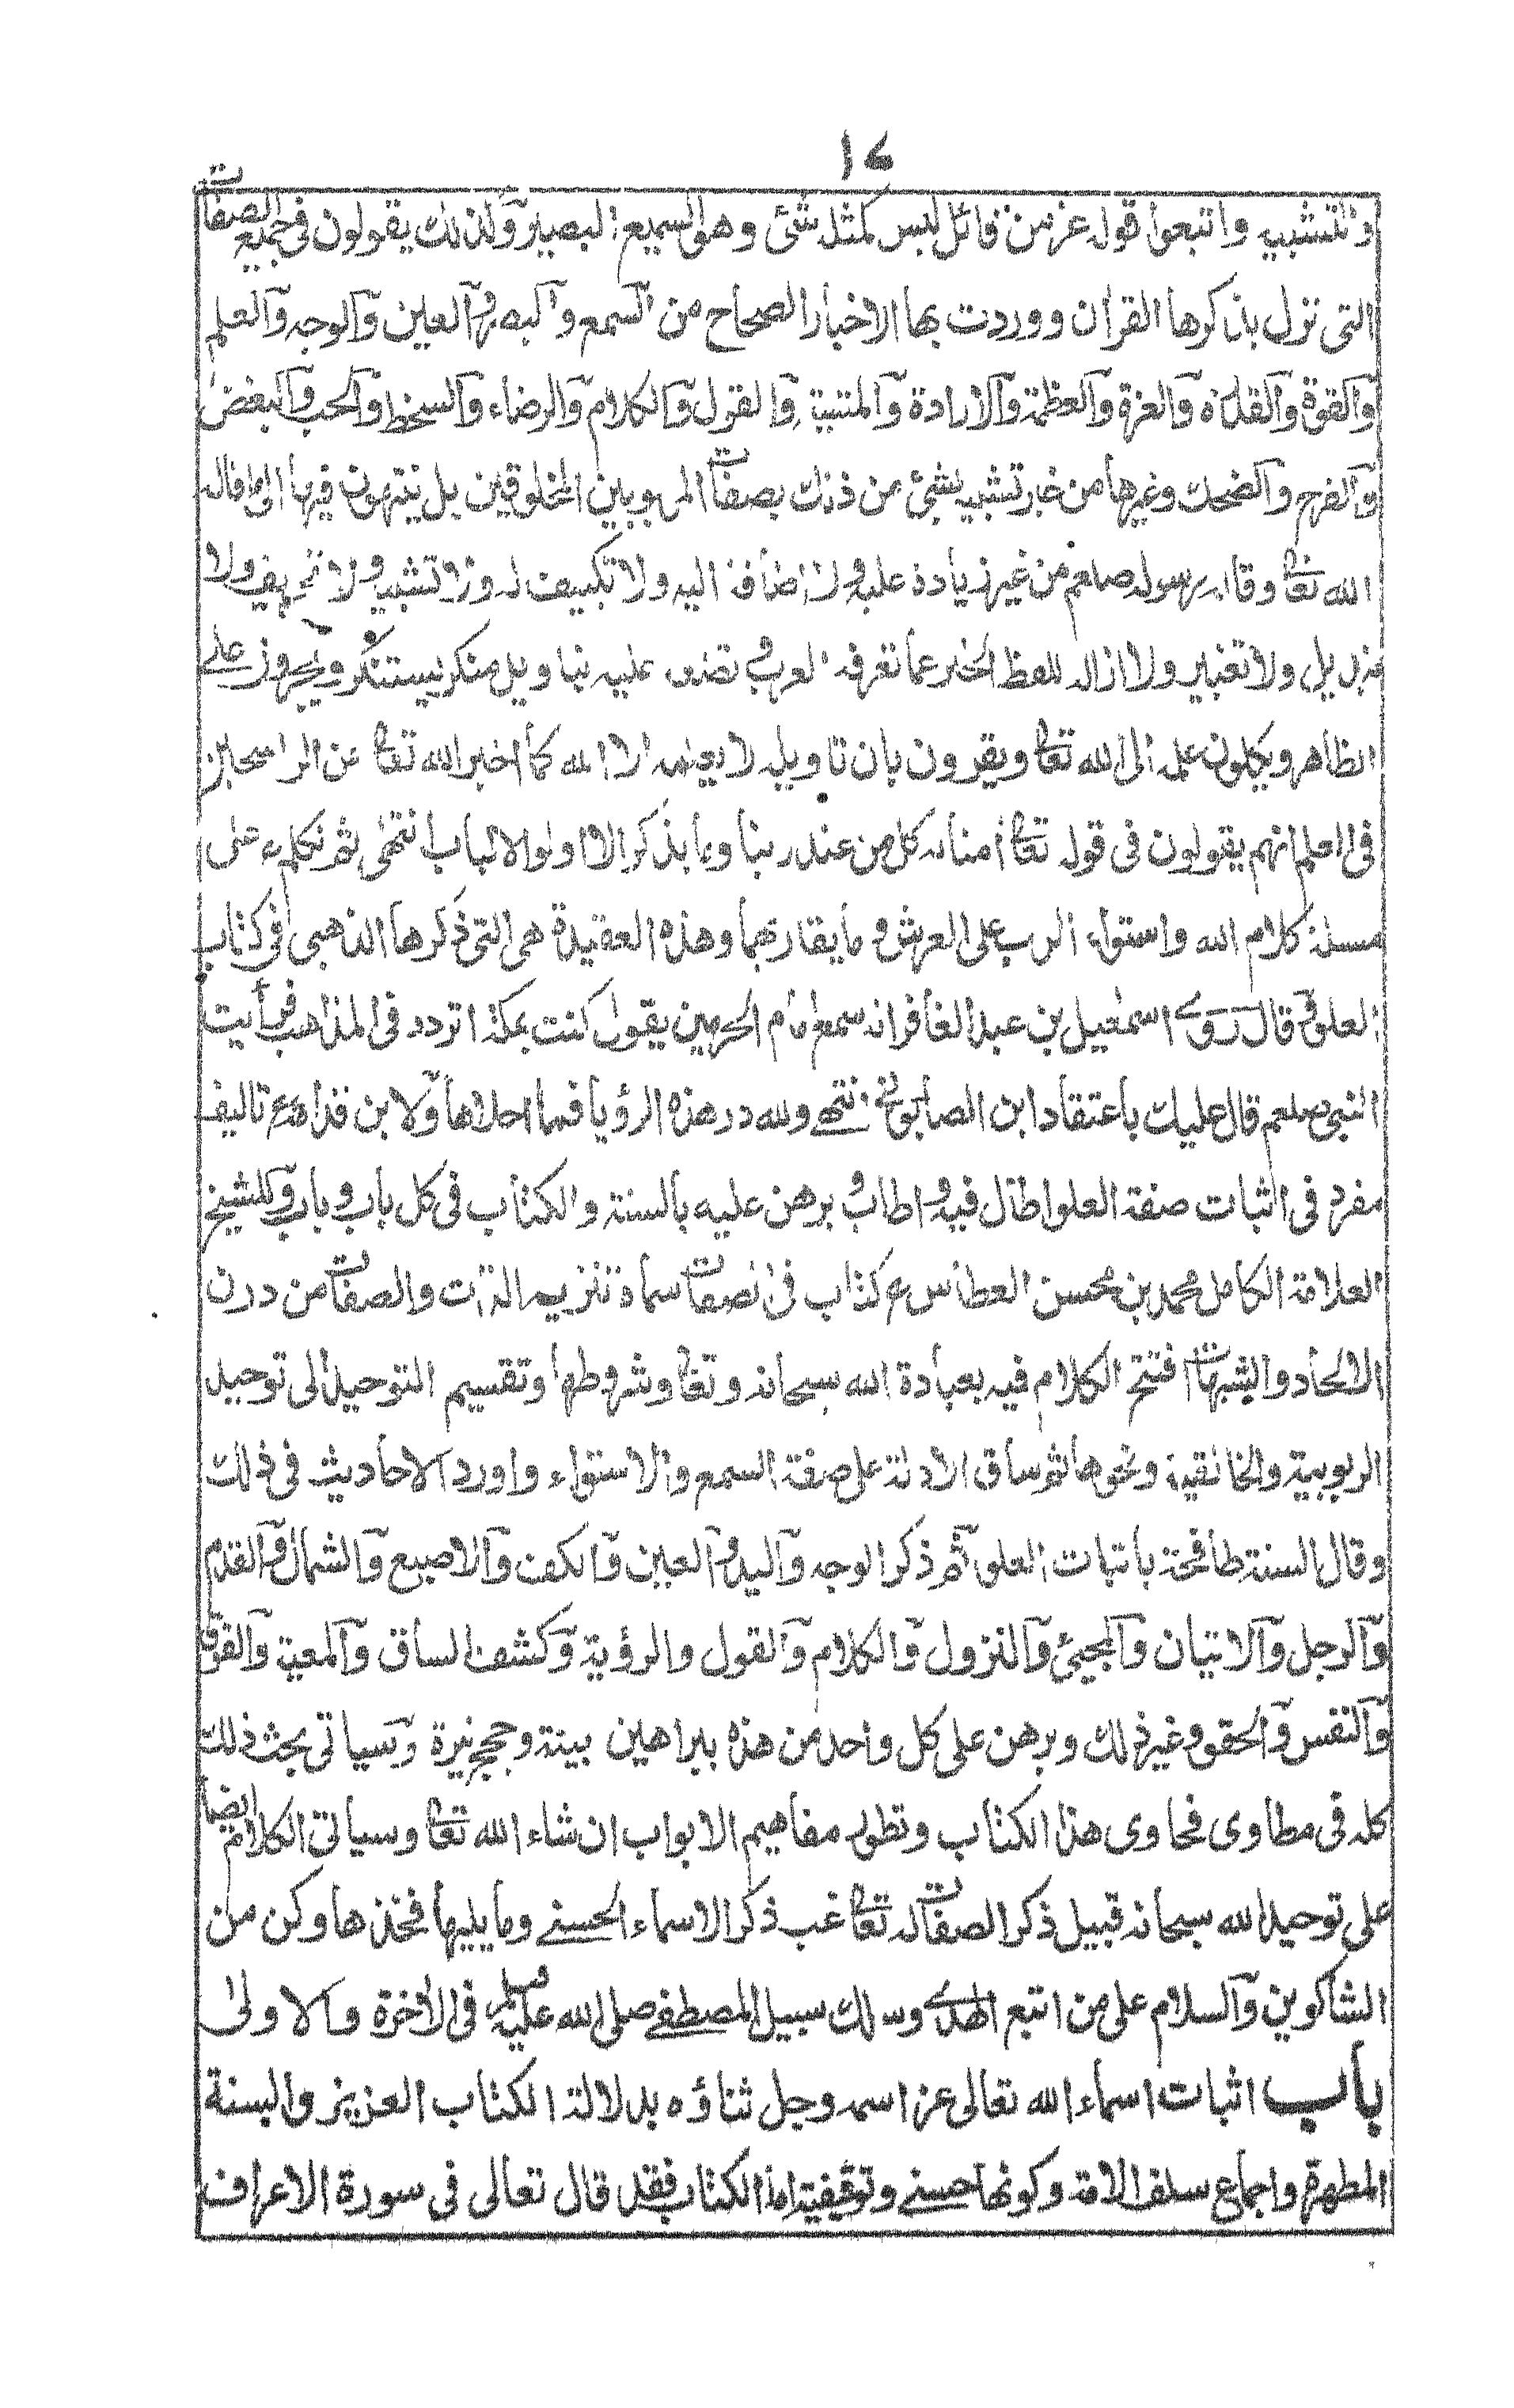 ١٤
والتشبيه واتبعوا قوله عز من قائل ليس كمثله شئ وهو السميع البصير ولذلك يقولون فى جميع الصفات
التى نزل بذكرها القرآن ووردت بها الاخبار الصحاح من السمع والبصر والعين والوجه والعلم
والقوة والقدرة والعزة والعظمة والارادة والمشية والقول والكلام والرضاء والسخط والحب والبغض
والفرح والضحك وغيرها من غير تشبيه بشئ من ذلك بصفات المربوبين المخلوقين بل ينتهون فيها الى ما قاله
الله تعا وقاله رسوله صلعم من غير زيادة عليه ولا اضافة اليه ولا تكييف له ولا تشبيه ولا تحريف ولا
تبديل ولا تغيير ولا ازالة للفظ الخبر عما تعرفه العرب و تضعه عليه بتاويل منكر يستنكر ويجرون على
الظاهر ويكلون علمه الى الله تعا ويقرون بان تاويله لا يعلمه الا الله كما اخبر الله تعا عن الراسخين
فى العلم انهم يقولون فى قوله تعا امنا به كل من عند ربنا وما يذكر الا اولو الالباب انتهى ثم تكلم على
مسئلة كلام الله واستواء الرب على العرش وما يقاربهما وهذه العقيدة هى التى ذكرها الذهبى فى كتاب
العلو وقال روى اسمعيل بن عبد الغافر انه سمع امام الحرمين يقول كنت بمكة اتردد فى المذاهب فرأيت
النبى صلعم قال عليك باعتقاد ابن الصابونى انتهى ولله در هذه الرؤيا فما احلاها ولابن قدامة تاليف
مفرد فى اثبات صفة العلو اطال فيه و اطاب و برهن عليه بالسنة والكتاب فى كل باب وباب وللشيخ
العلامة الكامل محمد بن محسن العطاس كتاب فى الصفات سماه تنزيه الذات والصفات من درن
الالحاد والشبهات افتتح الكلام فيه بعبادة الله سبحانه وتعا وشروطها وتقسيم التوحيد الى توحيد
الربوبية والخالقية ونحوها ثم ساق الادلة على صفة السمع والاستواء واورد الاحاديث فى ذلك
وقال السنة طافحة باثبات العلو ثم ذكر الوجه واليد والعين والكف والاصبع والشمال والقدم
والرجل والاتيان والمجيئ والنزول والكلام والقول والرؤية وكشف الساق والمعية والفوق
والنفس والحقو وغير ذلك وبرهن على كل واحد من هذه ببراهين بينة وحجج نيرة وسياتى بحث ذلك
كله فى مطاوى فحاوى هذا الكتاب وتطور مفاهيم الابواب ان شاء الله تعا وسياتى الكلام ايضا
على توحيد الله سبحانه قبيل ذكر الصفات له تعا غب ذكر الاسماء الحسنى وما يليها فخذها وكن من
الشاكرين والسلام على من اتبع الهدى وسلك سبيل المصطفى صلى الله عليه وسلم فى الآخرة والاولى
باب اثبات اسماء الله تعالى عز اسمه وجل ثناؤه بدلالة الكتاب العزيز والسنة
المطهرة واجماع سلف الامة وكونها حسنى وتوقيفية اما الكتاب فقد قال تعالى فى سورة الاعراف